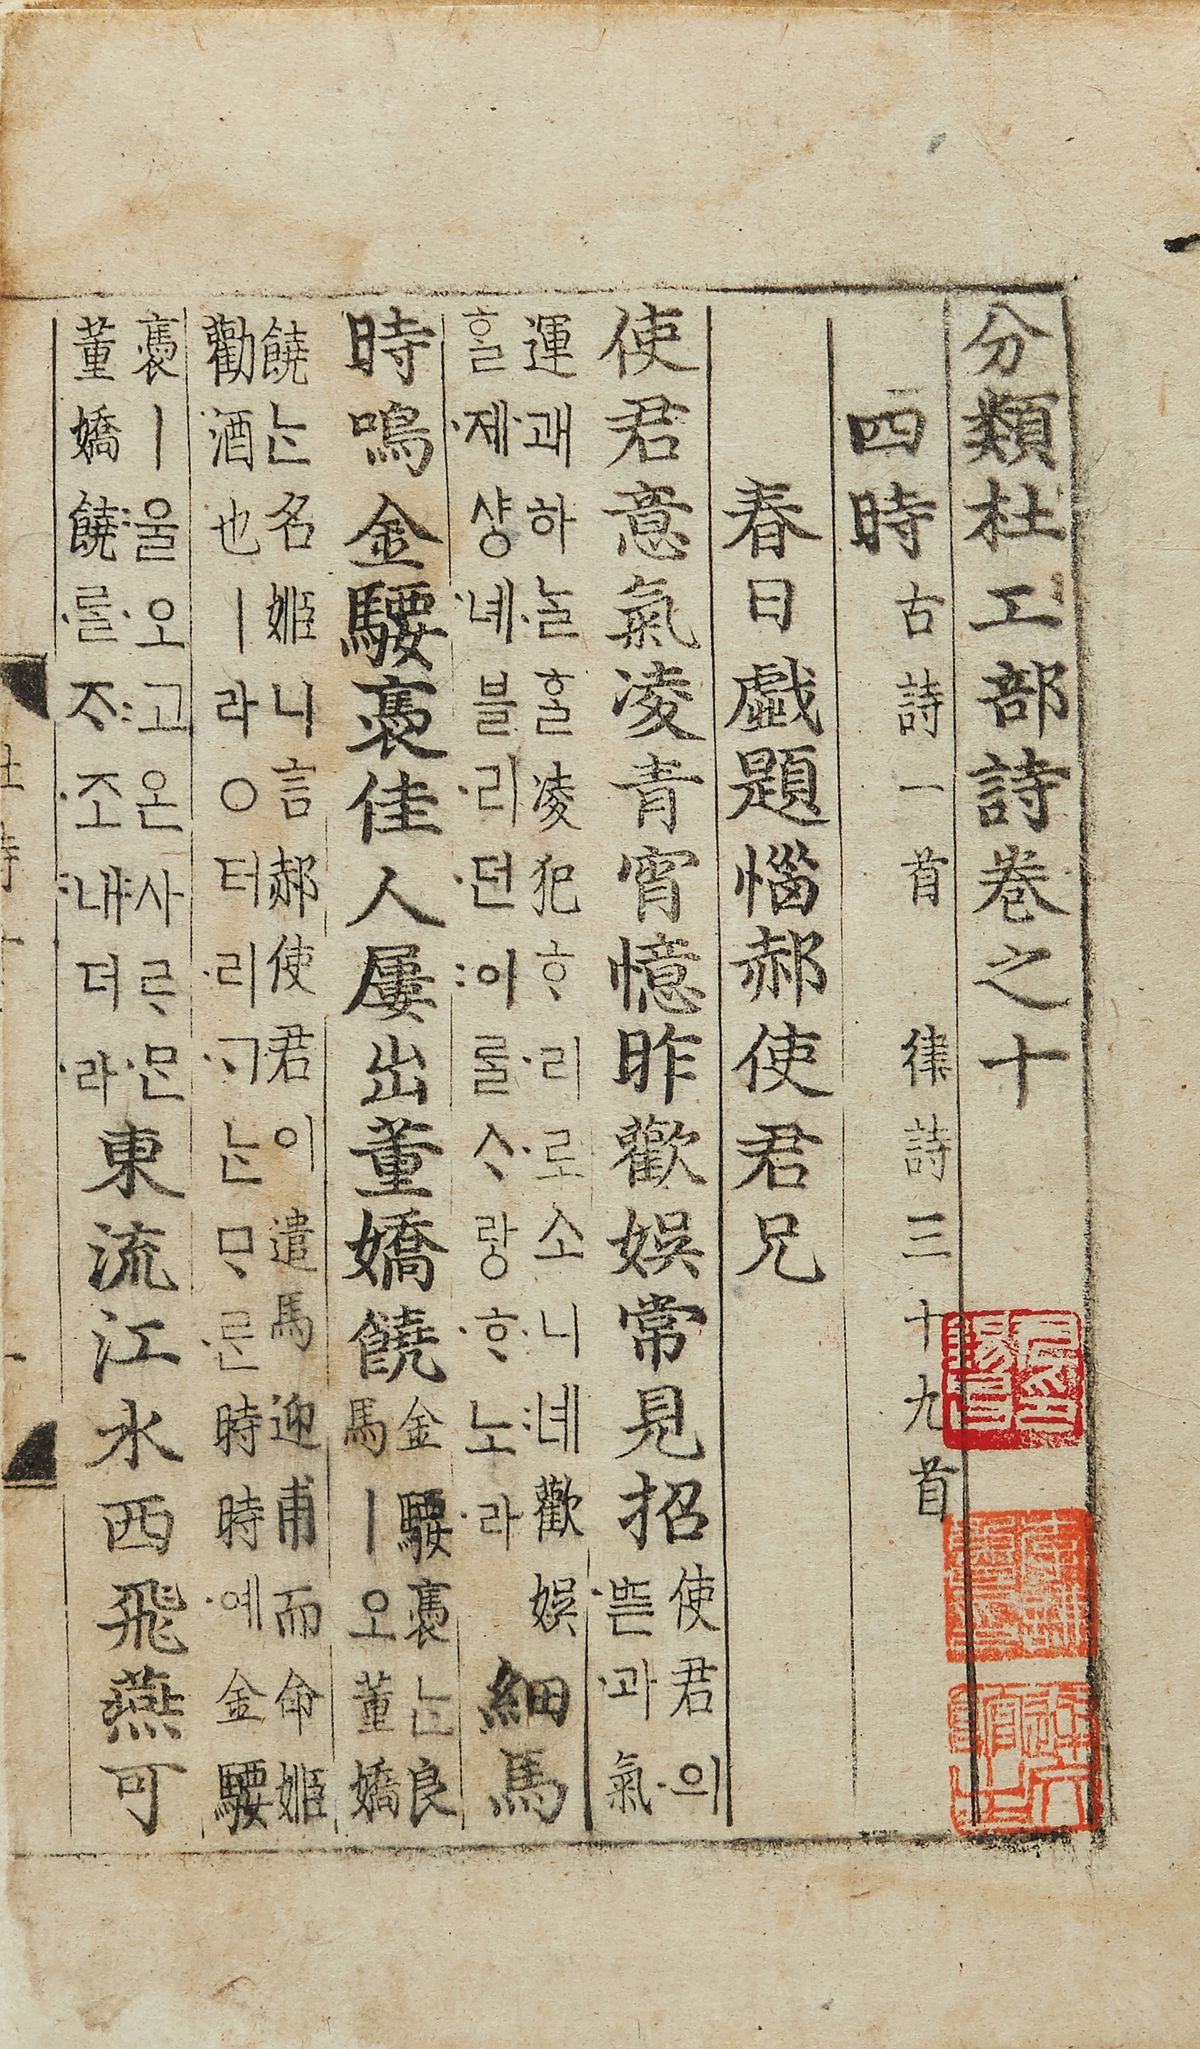 分類杜工部詩卷之十
四時 古詩一首 律詩三十九首
春日戲題惱郝使君兄
使君意氣凌青霄憶昨歡娛常見招 使君의
ᄠᅳᆮ과氣
運괘하ᄂᆞᆯᄒᆞᆯ凌犯ᄒᆞ리로소니녜歡娛
ᄒᆞᆯ제샹녜블리던이ᄅᆞᆯᄉᆞ랑ᄒᆞ노라
細馬
時鳴金騕褭佳人屢出董嬌饒
金騕褭ᄂᆞᆫ良
馬ㅣ오董嬌
饒ᄂᆞᆫ名姬니言郝使君이遣馬迎甫而命姬
勸酒也ㅣ라○뎌리ᄀᆞᄂᆞᆫᄆᆞᄅᆞᆫ時時예金騕
褭ㅣ울오고온사ᄅᆞᄆᆞᆫ
董嬌饒ᄅᆞᆯᄌᆞ조내더라
東流江水西飛燕可